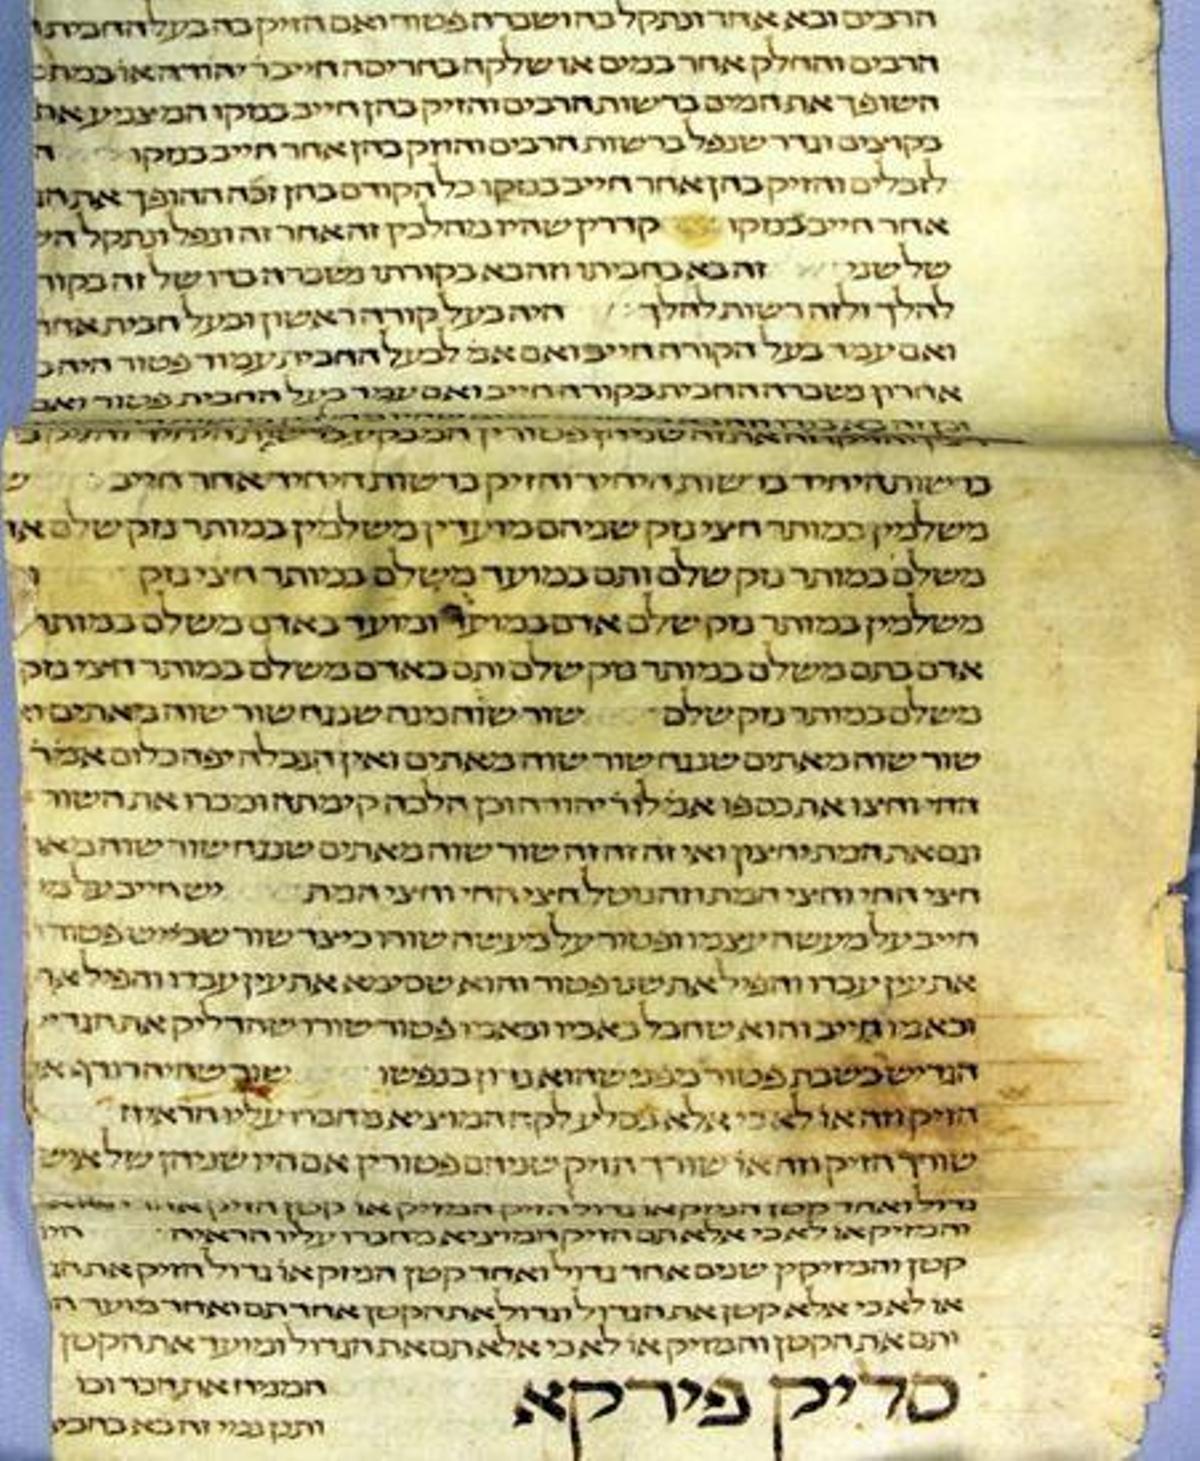 הרבים ובא אחר ונתקל בה ושברה פטור ואם הוזק בה בעל החבית
הרבים והחלק אחר במים או שלקה בחריסה חייב ר יהודה או במת
השופך את המים ברשות הרבים והוזק בהן חייב בנזקו המצניע את
בקוצים וגדר שנפל ברשות הרבים והוזק בהן אחר חייב בנזקו
לזבלים והוזיק בהן אחר חייב בנזקו כל הקודם בהן זכה ההופך את
אחר חייב בנזקו קדרין שהיו מהלכין זה אחר זה ונפל ונתקל
של שני זה בא בחביתו וזה בא בקורתו נשברה כדו של זה בקור
להלך ולזה רשות להלך היה בעל קורה ראשון ובעל חבית אחר
ואם עמד בעל הקורה חייב ואם אמ לבעל החבית עמוד פטור היה ב
אחרון נשברה החבית בקורה חייב ואם עמד בעל החבית פטור ואם
וכן זה בא
ברשות היחיד ברשות היחיד והזיק ברשות היחיד אחר חייב
משלמין במותר חצי נזק שניהם מועדין משלמין במותר נזק שלם או
משלם במותר נזק שלם ותם במועד משלם במותר חצי נזק
משלמין במותר נזק שלם אדם במועד ומועד באדם משלם במותר
אדם בתם משלם במותר נזק שלם ותם באדם משלם במותר חצי נזק
משלם במותר נזק שלם שור שוה מנה שנגח שור שוה מאתים
שור שוה מאתים שנגח שור שוה מאתים ואין הנבלה יפה כלום אמ ר
החי וחצו את כספו אמ לו ר יהודה וכן הלכה קיימתה ומכרו את השור
וגם את המת יחצון ואי זה זה זה שור שוה מאתים שנגח שור שוה מאו
חצי החי וחצי המת וזה נוטל חצי החי וחצי המת יש חייב על מ
חייב על מעשה עצמו ופטור על מעשה שורו כיצד שור שבייש פטור
את עין עבדו והפיל את שנו פטור והוא שסימא את עין עבדו והפיל את
ובאמו חייב והוא שחבל באביו ובאמו פטור שורו שהדליק את הגדי
הגדיש בשבת פטור מפני שהוא נדון בנפשו שור שהיה רודף א
הזיק וזה או לא כי אלא בסלע לקה המוציא מחברו עליו הראיה
שורך הזיק וזה או שורך הזיק שניהם פטורין אם היו שניהן של איש
גדול ואחד קטן הניזק או גדול הזיק המזיק או קטן הזיק
והמזיק או לא כי אלא תם הזיק המוציא מחברו עליו הראיה היו
קטן והמזיקין שנים אחד גדול ואחד קטן הניזק או גדול הזיק את
או לא כי אלא קטן את הגדול וגדול את הקטן אחד תם ואחד מועד ה
ותם את הקטן והמזיק או לא כי אלא תם את הגדול ומועד את הקטן
סליק פירקא
המניח את הכד וכו
ותנן נמי זה בא בחבי